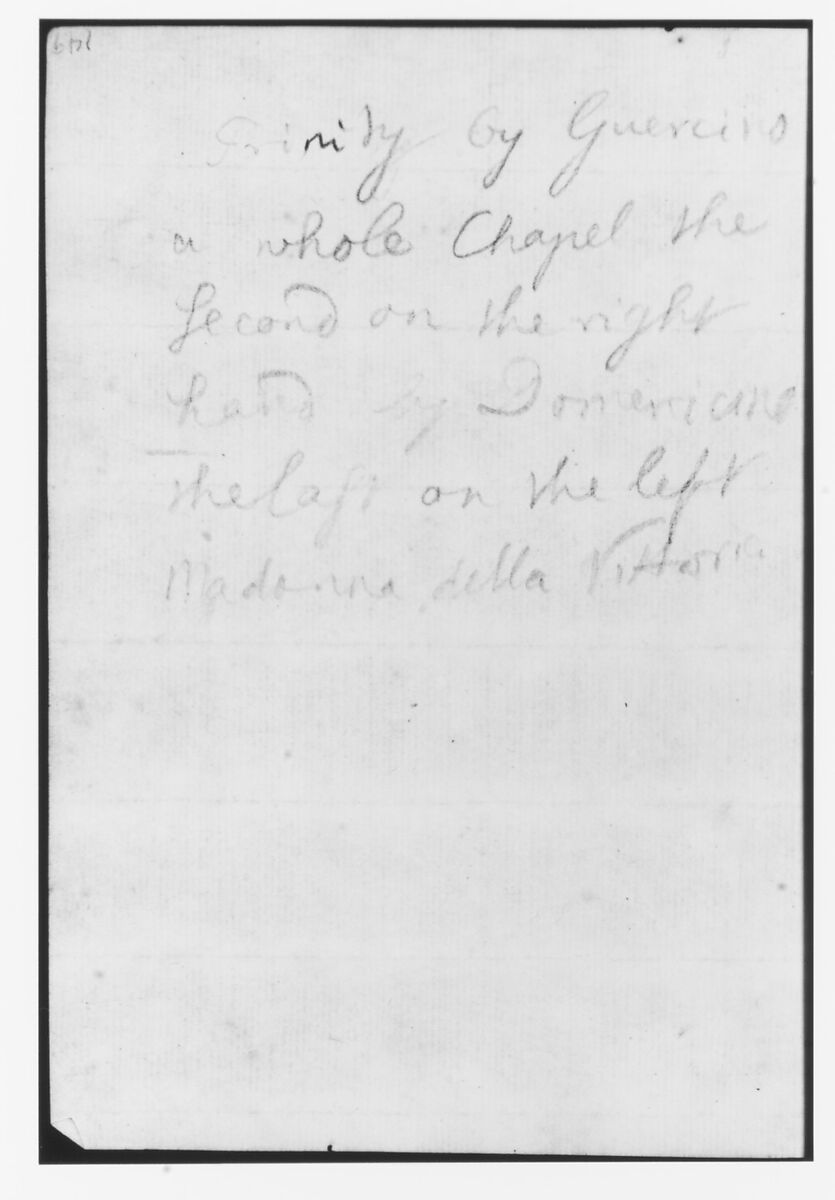 Trinity by Guercino
a whole Chapel the
second on the right
hand by Domenicino
the last on the left
Madonna della Vittoria